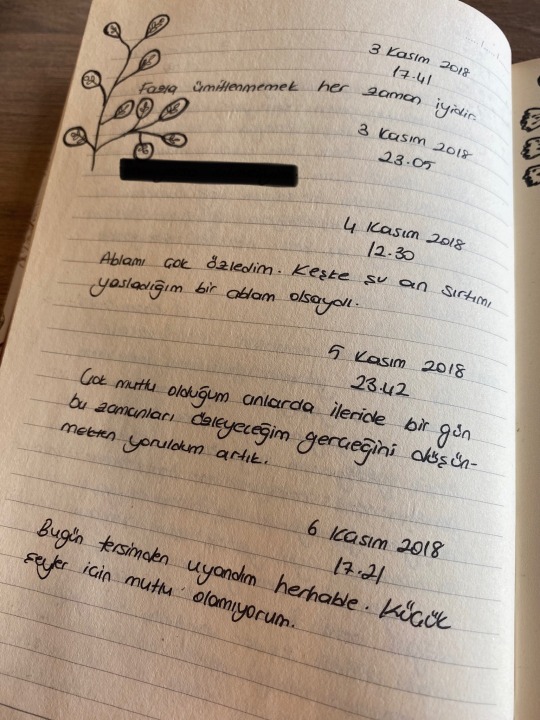 3 Kasım 2018
17.41
Fazla ümitlenmemek her zaman iyidir
3 Kasım 2018
23.05
4 Kasım 2018
12.30
Ablamı çok özledim. Keşke şu an sırtımı
yasladığım bir ablam olsaydı.
5 Kasım 2018
23.42
Çok mutlu olduğum anlarda ileride bir gün
bu zamanları özleyeceğim gerçeğini düşün-
mekten yoruldum artık.
6 Kasım 2018
17.21
Bugün tersimden uyandım herhalde. Küçük
şeyler için mutlu olamıyorum.